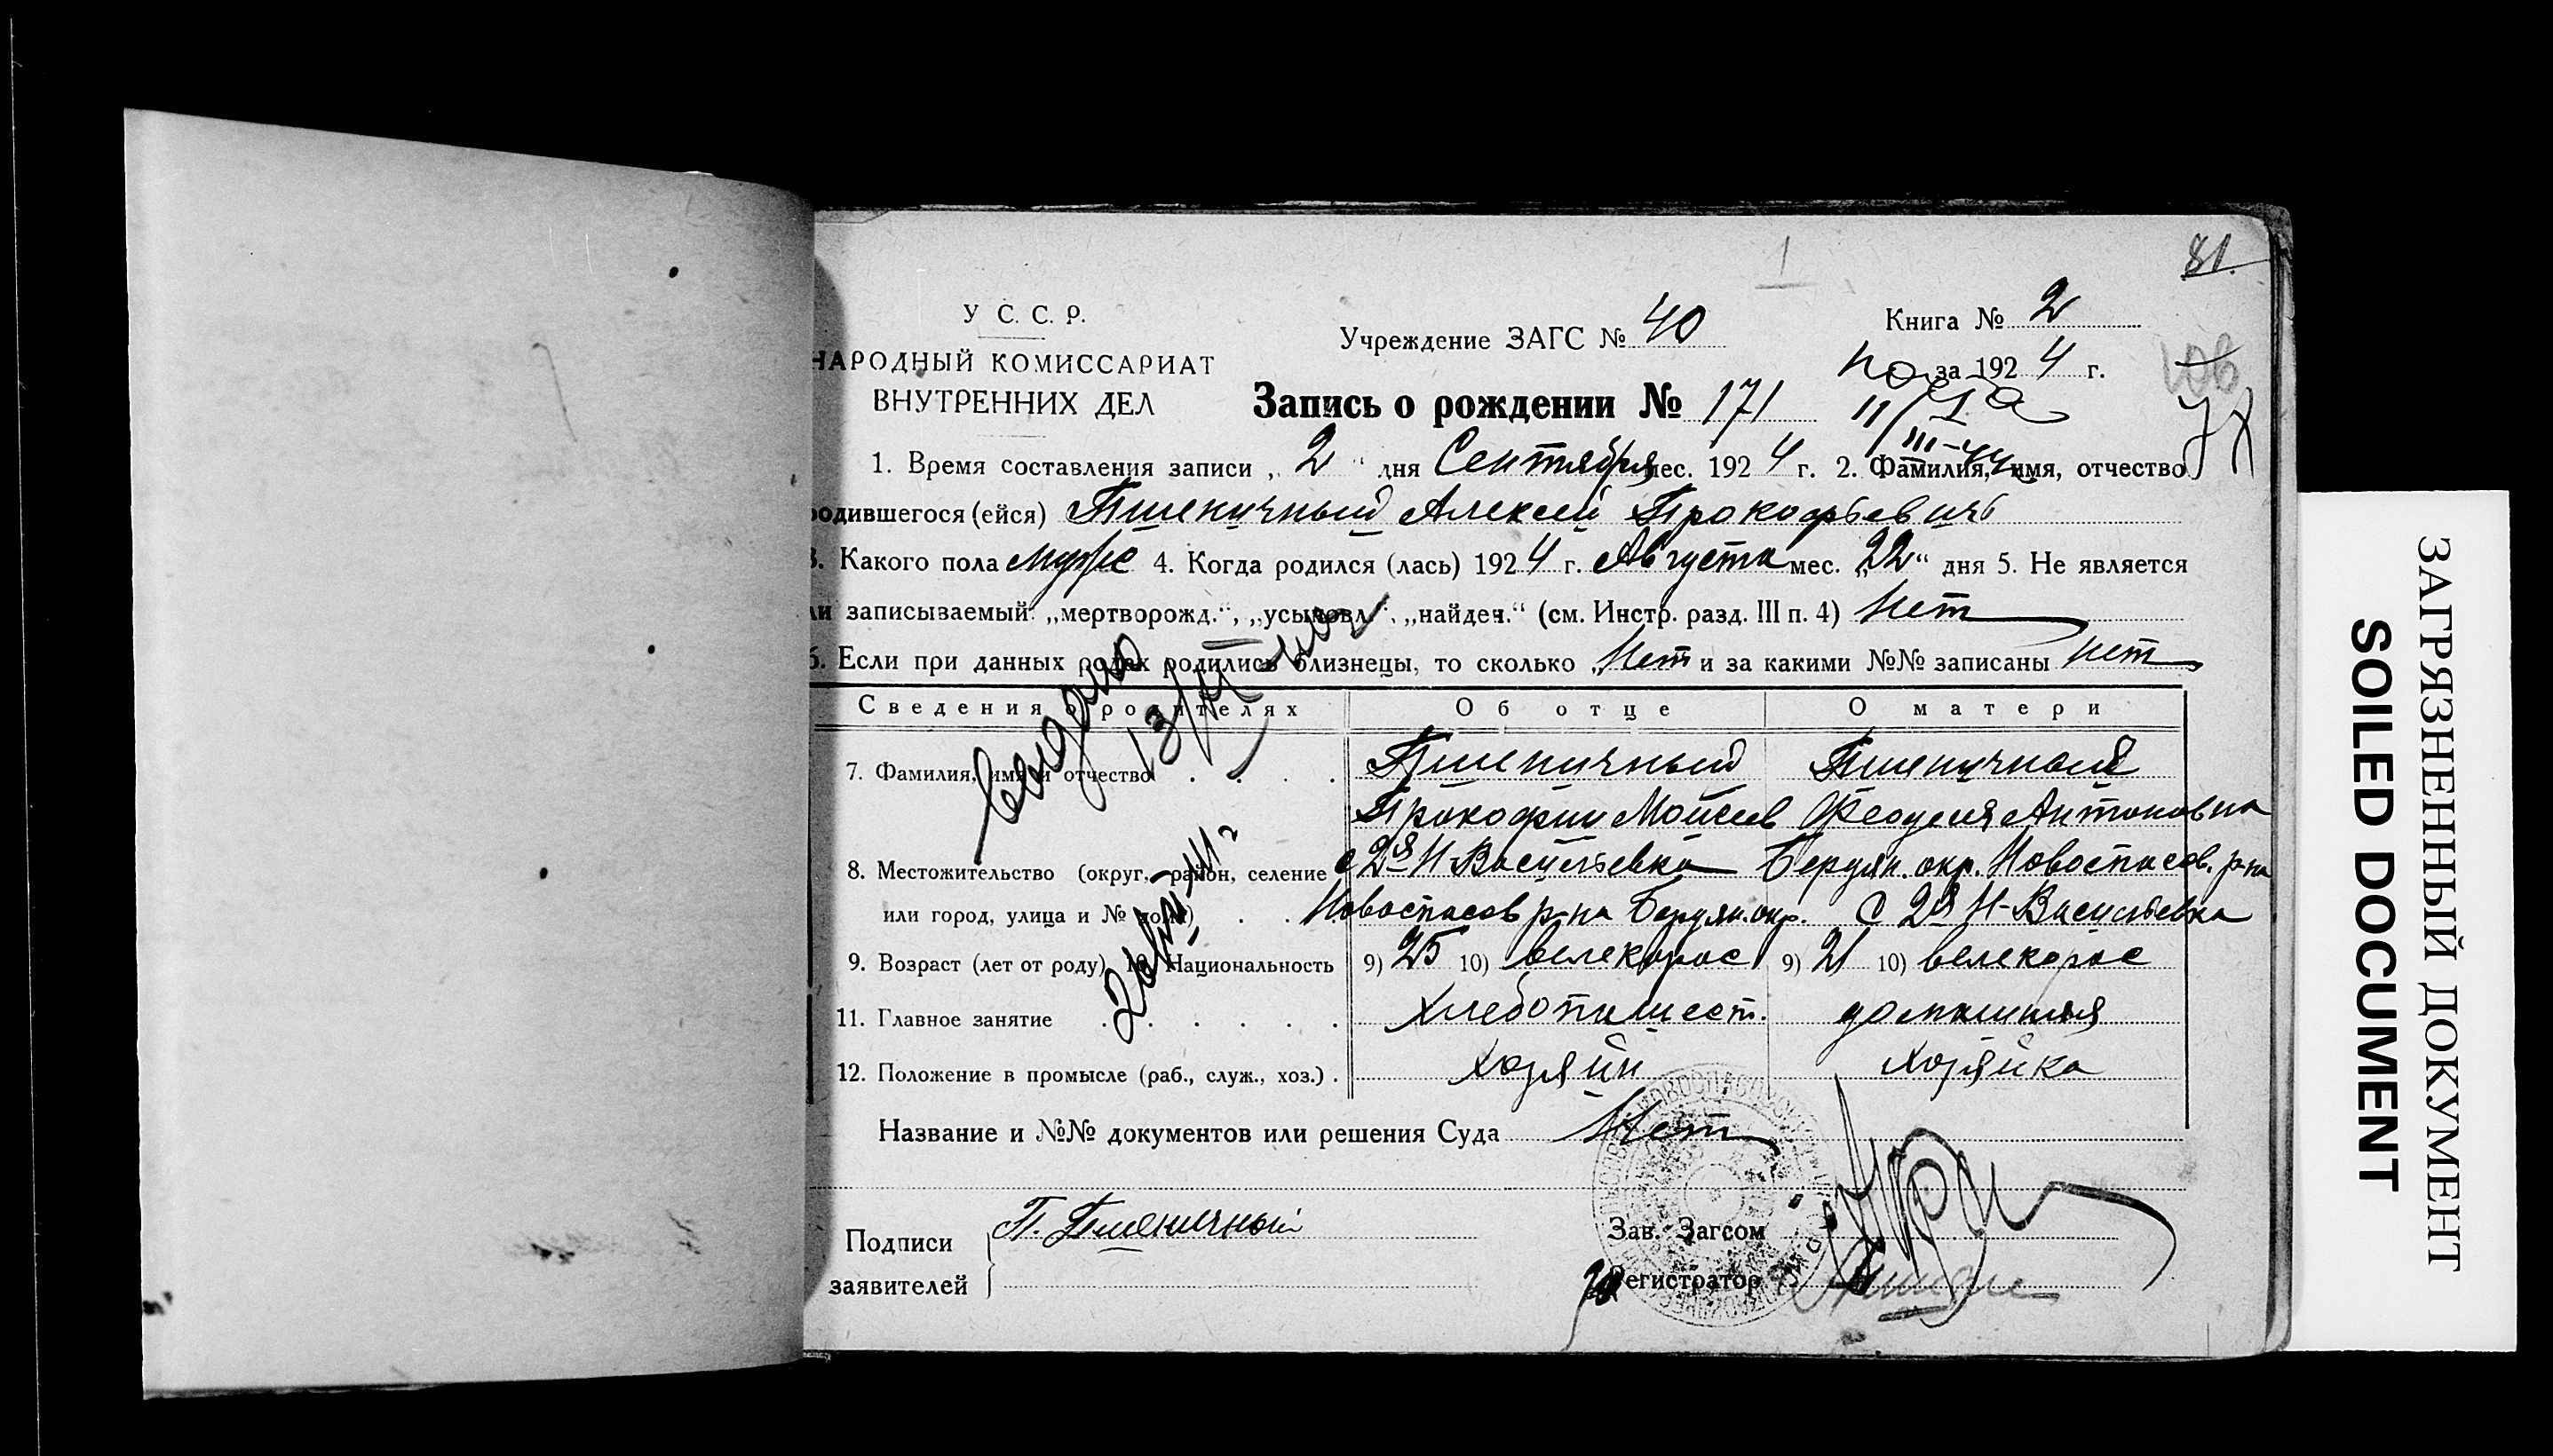 81.
1
У С. С. Р.
НАРОДНЫЙ КОМИССАРИАТ
ВНУТРЕННИХ ДЕЛ
Учреждение ЗАГС № 40
Книга № 2
за 1924 г.
Запись о рождении № 171
1. Время составления записи „2“ дня Сентября мес. 1924 г. 2. Фамилия, имя, отчество
родившегося (ейся) Пшеничный Алексей Прокофьевичь
3. Какого пола муж 4. Когда родился (лась) 1924 г. Августа мес. „22“ дня 5. Не является
ли записываемый „мертворожд.“, „усыновл.“, „найден.“ (см. Инстр. разд. III п. 4) Нет
6. Если при данных родах родились близнецы, то сколько „Нет и за какими №№ записаны нет
Сведения о родителях Об отце О матери
7. Фамилия, имя и отчество Пшеничный Пшеничный
Прокофии Моисеев Феодусия Антоновна
8. Местожительство (округ, район, селение с 2я Н Васильевка Бердян. окр. Новоспасов. р-на
или город, улица и № дома) Новоспасов р-на Бердян. окр. С 2я Н-Васильевка
9. Возраст (лет от роду) 10. Национальность 9) 25 10) велекорос 9) 21 10) велекорос
11. Главное занятие Хлебопашест. домашняя
12. Положение в промысле (раб., служ., хоз.) Хозяйн Хозяйка
Название и №№ документов или решения Суда Нет
Подписи П. Пшеничный
заявителей
Зав. Загсом
Регистратор
ЗАГРЯЗНЕННЫЙ ДОКУМЕНТ
SOILED DOCUMENT